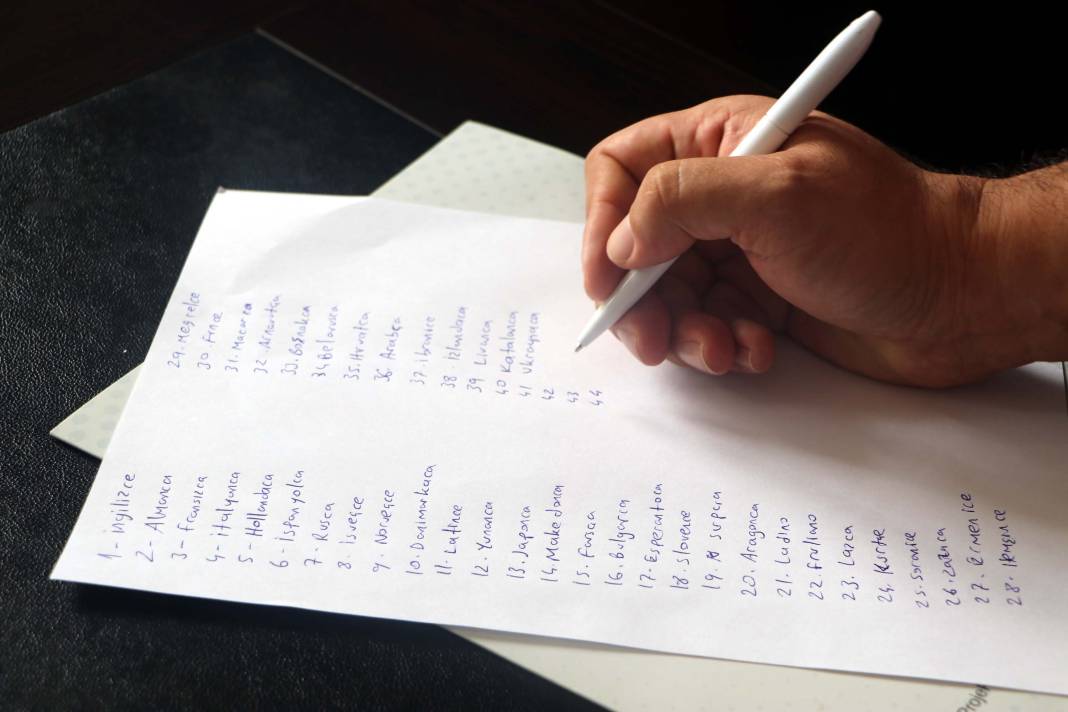 1- ingilizce
2- Almanca
3- Fransızca
4- italyanca
5- Hollandaca
6- ispanyolca
7- Rusca
8. isveçce
9. Norveçce
10. Danimarkaca
11. Latince
12. Yunanca
13. Japonca
14. Makedonca
15. Farsca
16. Bulgarca
17. Esperantoca
18. Slovence
19. sırpca
20. Aragonca
21. Ladino
22. Friulano
23. Lazca
24. Kürtçe
25.
26. Zazaca
27. Ermenice
28.
29. Megrelce
30 Fince
31. Macarca
32. Arnavutça
33. Boşnakca
34 Belarusca
35. Hırvatca
36. Arabça
37. ibranice
38. izlandaca
39 Livonca
40 Katalanca
41 Ukraynaca
42
43
44
Proje